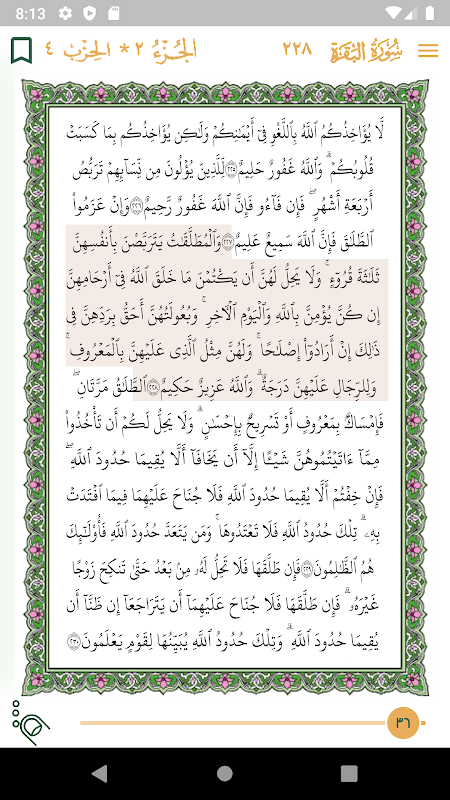 8:13
سُورَةُ البَقَرَةِ ٢٢٨ الجُزْءُ ٢ * الحِزْب ٤
لَّا يُؤَاخِذُكُمُ ٱللَّهُ بِٱللَّغْوِ فِىٓ أَيْمَـٰنِكُمْ وَلَـٰكِن يُؤَاخِذُكُم بِمَا كَسَبَتْ
قُلُوبُكُمْ ۗ وَٱللَّهُ غَفُورٌ حَلِيمٌ ٢٢٥ لِّلَّذِينَ يُؤْلُونَ مِن نِّسَآئِهِمْ تَرَبُّصُ
أَرْبَعَةِ أَشْهُرٍ ۖ فَإِن فَآءُو فَإِنَّ ٱللَّهَ غَفُورٌ رَّحِيمٌ ٢٢٦ وَإِنْ عَزَمُوا۟
ٱلطَّلَـٰقَ فَإِنَّ ٱللَّهَ سَمِيعٌ عَلِيمٌ ٢٢٧ وَٱلْمُطَلَّقَـٰتُ يَتَرَبَّصْنَ بِأَنفُسِهِنَّ
ثَلَـٰثَةَ قُرُوٓءٍ ۚ وَلَا يَحِلُّ لَهُنَّ أَن يَكْتُمْنَ مَا خَلَقَ ٱللَّهُ فِىٓ أَرْحَامِهِنَّ
إِن كُنَّ يُؤْمِنَّ بِٱللَّهِ وَٱلْيَوْمِ ٱلْـَٔاخِرِ ۚ وَبُعُولَتُهُنَّ أَحَقُّ بِرَدِّهِنَّ فِى
ذَٰلِكَ إِنْ أَرَادُوٓا۟ إِصْلَـٰحًا ۚ وَلَهُنَّ مِثْلُ ٱلَّذِى عَلَيْهِنَّ بِٱلْمَعْرُوفِ ۚ
وَلِلرِّجَالِ عَلَيْهِنَّ دَرَجَةٌ ۗ وَٱللَّهُ عَزِيزٌ حَكِيمٌ ٢٢٨ ٱلطَّلَـٰقُ مَرَّتَانِ ۖ
فَإِمْسَاكٌۢ بِمَعْرُوفٍ أَوْ تَسْرِيحٌۢ بِإِحْسَـٰنٍ ۗ وَلَا يَحِلُّ لَكُمْ أَن تَأْخُذُوا۟
مِمَّآ ءَاتَيْتُمُوهُنَّ شَيْـًٔا إِلَّآ أَن يَخَافَآ أَلَّا يُقِيمَا حُدُودَ ٱللَّهِ ۖ
فَإِنْ خِفْتُمْ أَلَّا يُقِيمَا حُدُودَ ٱللَّهِ فَلَا جُنَاحَ عَلَيْهِمَا فِيمَا ٱفْتَدَتْ
بِهِۦ ۗ تِلْكَ حُدُودُ ٱللَّهِ فَلَا تَعْتَدُوهَا ۚ وَمَن يَتَعَدَّ حُدُودَ ٱللَّهِ فَأُو۟لَـٰٓئِكَ
هُمُ ٱلظَّـٰلِمُونَ ٢٢٩ فَإِن طَلَّقَهَا فَلَا تَحِلُّ لَهُۥ مِنۢ بَعْدُ حَتَّىٰ تَنكِحَ زَوْجًا
غَيْرَهُۥ ۗ فَإِن طَلَّقَهَا فَلَا جُنَاحَ عَلَيْهِمَآ أَن يَتَرَاجَعَآ إِن ظَنَّآ أَن
يُقِيمَا حُدُودَ ٱللَّهِ ۗ وَتِلْكَ حُدُودُ ٱللَّهِ يُبَيِّنُهَا لِقَوْمٍ يَعْلَمُونَ ٢٣٠
٣٦